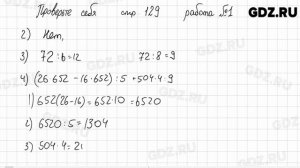 Проверьте себя стр 129 работа №1
GDZ.RU
2) Нет,
3) 72 : 6 = 12 72 : 8 = 9
4) (26·652 – 16·652) : 5 + 504·4·9
1) 652(26-16) = 652·10 = 6520
2) 6520 : 5 = 1304
3) 504 · 4 = 20
GDZ.RU